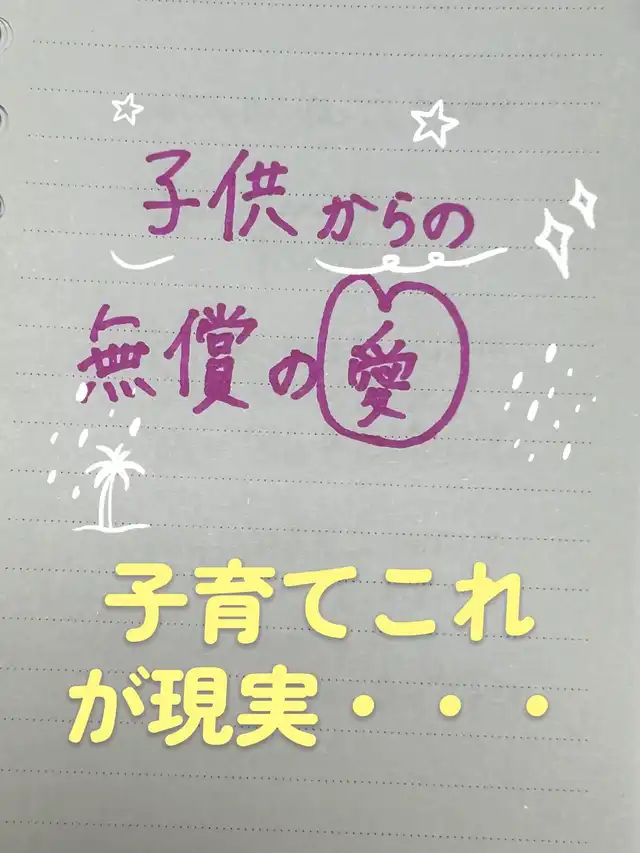 子供からの
無償の愛
子育てこれ
が現実・・・